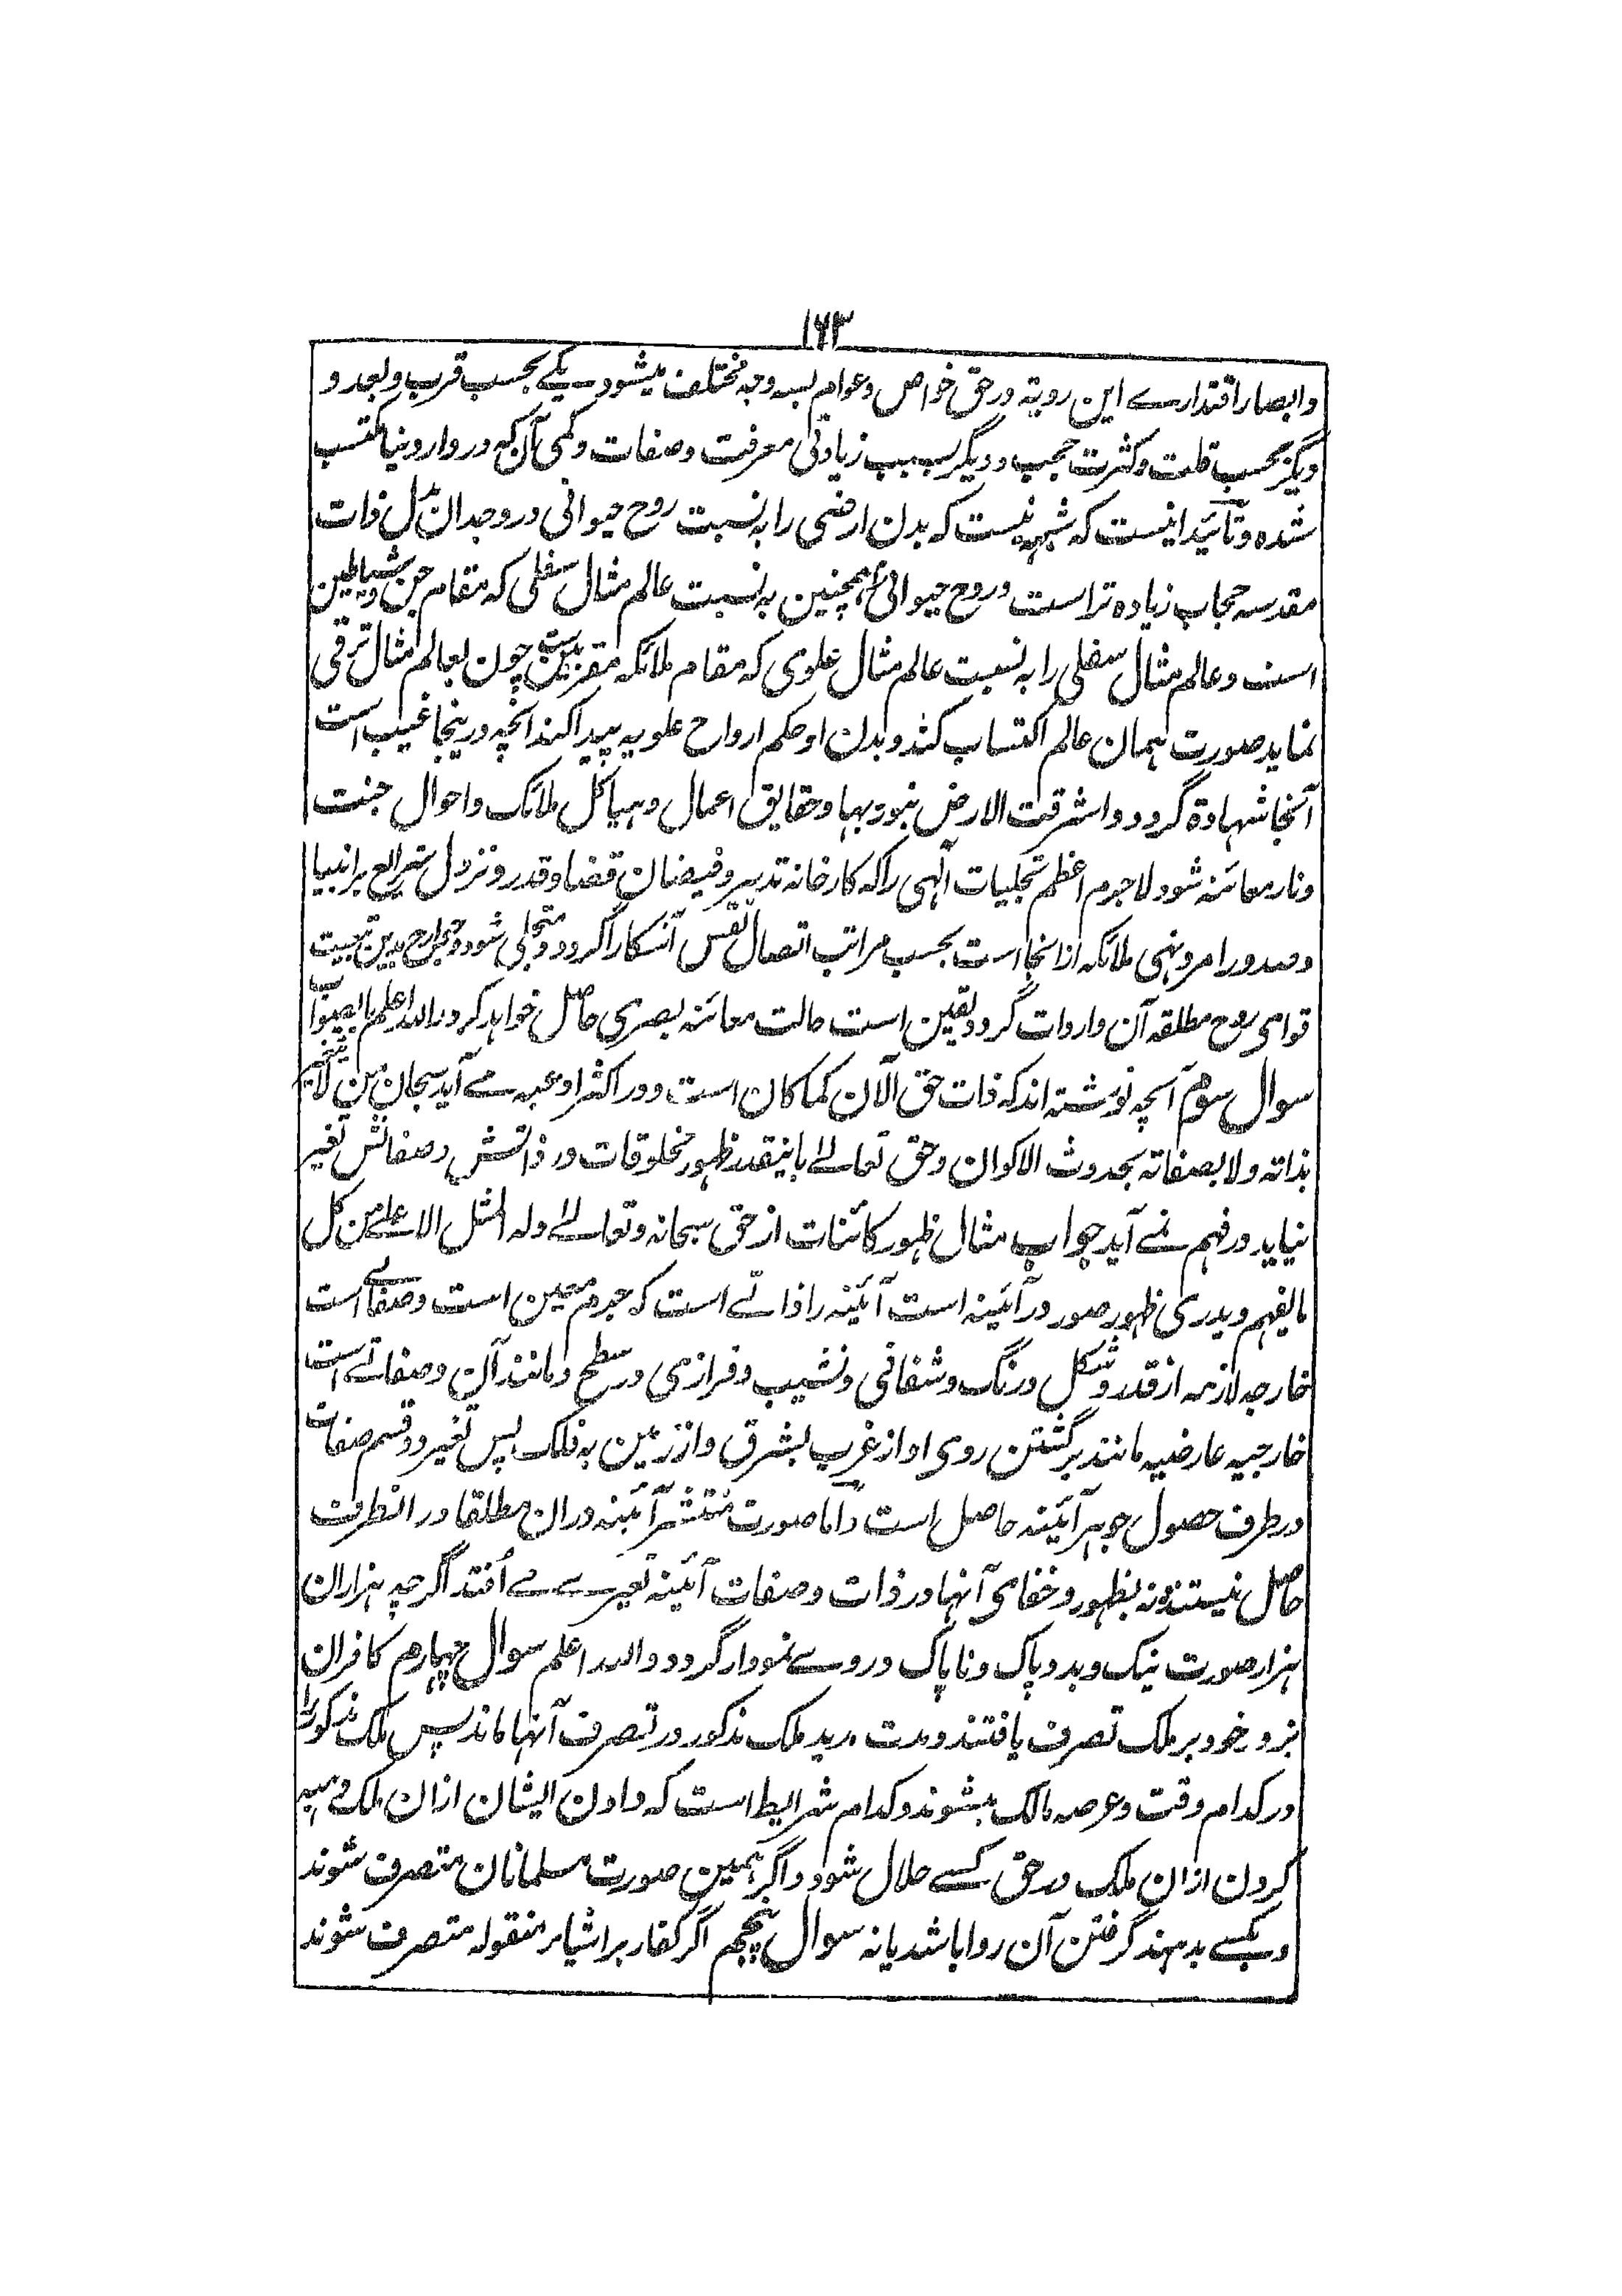 ۱۶۳
وابصار اقتدارے این رویته در حق خواص و عوام بسه وجه مختلف میشود ـ یکے بحسب قرب و بعد و
دیگر بحسب قلت و کثرت حجب و دیگر بسبب زیادتی معرفت و صفات و کمی آن که در دار دنیا مکتسب
شده و تائید اینست که شبهه نیست که بدن ارضی را به نسبت روح حیوانی در وجدان ذات
مقدسه حجاب زیاده تر است و روح حیوانی همچنین به نسبت عالم مثال سفلی که مقام جن و شیاطین
است و عالم مثال سفلی را به نسبت عالم مثال علوی که مقام ملائکه مقربین ست چون بعالم مثال ترقی
نماید صورت همان عالم اکتساب کند و بدن او حکم ارواح علویه پیدا کند انچه درینجا غیب است
آنجا شهادة گردد و اشرقت الارض بنور ربها و حقایق اعمال و هیاکل ملائک و احوال جنت
و نار معائنه شود لاجرم اعظم تجلیات الٰهی را که کارخانه تدبیر و فیضان قضا و قدر و نزول شرایع بر انبیا
و صدور امر و نهی ملائکه از انجا است بحسب مراتب اتصال نفس آشکارا گردد و متجلی شود و جوارح بدین تبعیت
قوای روح مطلقه آن واردات گردد یقین است حالت معائنه بصری حاصل خواهد کرد والله اعلم بالصواب
سوال سوم آنچه نوشته اند که ذات حق الآن کما کان است و در اکثر ادعیه مے آید سبحان من لا یتغیر
بذاته ولا بصفاته بحدوث الاکوان و حق تعالے باینقدر ظهور مخلوقات در ذاتش و صفاتش تغیر
نیاید در فهم نمے آید جواب مثال ظهور کائنات از حق سبحانه و تعالے وله المثل الاعلے من کل
ما یفهم و یدری ظهور صور در آئینه است آئینه را ذاتے است که جرم معین است و صفاتے است
خارجه لازمه از قدر و شکل و رنگ و شفافی و نشیب و فرازی در سطح و مانند آن و صفاتے است
خارجیه عارضیه مانند برگشتن روی او از غرب بشرق و از زمین به فلک پس تغیر دو قسم صفات
در طرف حصول جوهر آئینه حاصل است و اما صورت آئینه دران مطلقا در انظرف
حاصل نیستند و نه بظهور و خفای آنها در ذات و صفات آئینه تغیرے مے افتد اگر چه هزاران
هزار صورت نیک و بد و پاک و ناپاک در وے نمودار گردد والله اعلم سوال چهارم کافران
بزور خود بر ملک تصرف یافتند و مدت مدید ملک مذکور در تصرف آنها ماند پس ملک مذکور را
در کدام وقت و عرصه مالک میشوند و کدام شرایط است که دادن ایشان ازان ملک و هبه
کردن ازان ملک در حق کسے حلال شود و اگر همین صورت مسلمانان متصرف شوند
و بکسے بدهند گرفتن آن روا باشد یا نه سوال پنجم اگر کفار بر اشیاء منقوله متصرف شوند